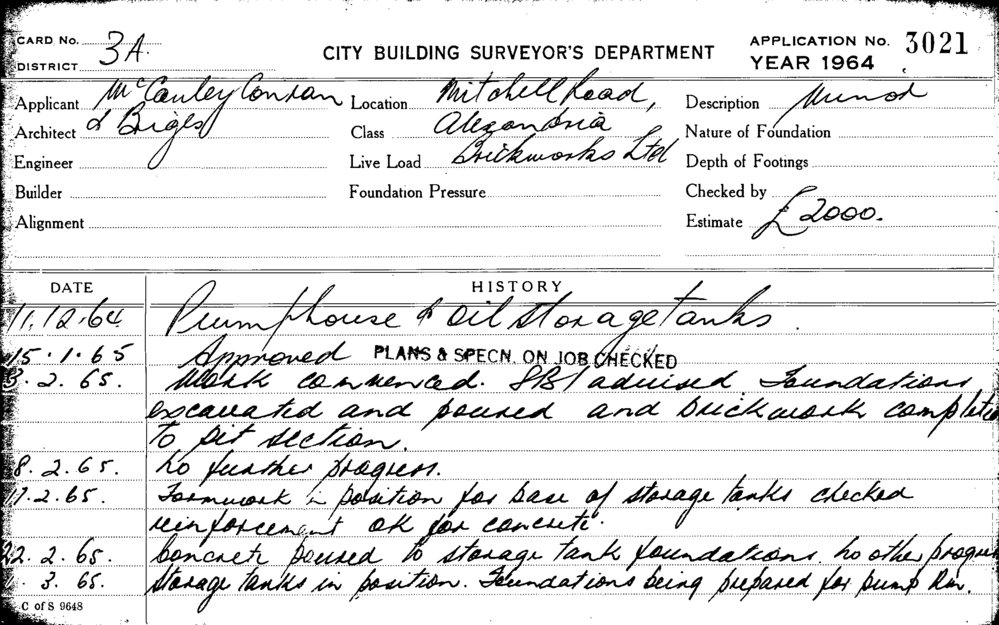 CARD No. 3A.
DISTRICT
CITY BUILDING SURVEYOR'S DEPARTMENT
APPLICATION No. 3021
YEAR 1964
Applicant McCauley Conran Location Mitchell Road, Description Minor
Architect & Brigs Class Alexandria Nature of Foundation
Engineer Live Load Brickworks Ltd Depth of Footings
Builder Foundation Pressure Checked by
Alignment Estimate £2000.
DATE HISTORY
11.12.64 Pumphouse & oil storage tanks.
15.1.65 Approved PLANS & SPECN. ON JOB CHECKED
3.2.65. Work commenced. advised Foundations
excavated and poured and brickwork complete
to pit section.
8.2.65. No further progress.
17.2.65. Formwork in position for base of storage tanks checked
reinforcement OK for concrete.
22.2.65. Concrete poured to storage tank foundations. No other
3.65. Storage tanks in position. Foundations being prepared for pump Rm.
C of S 9648